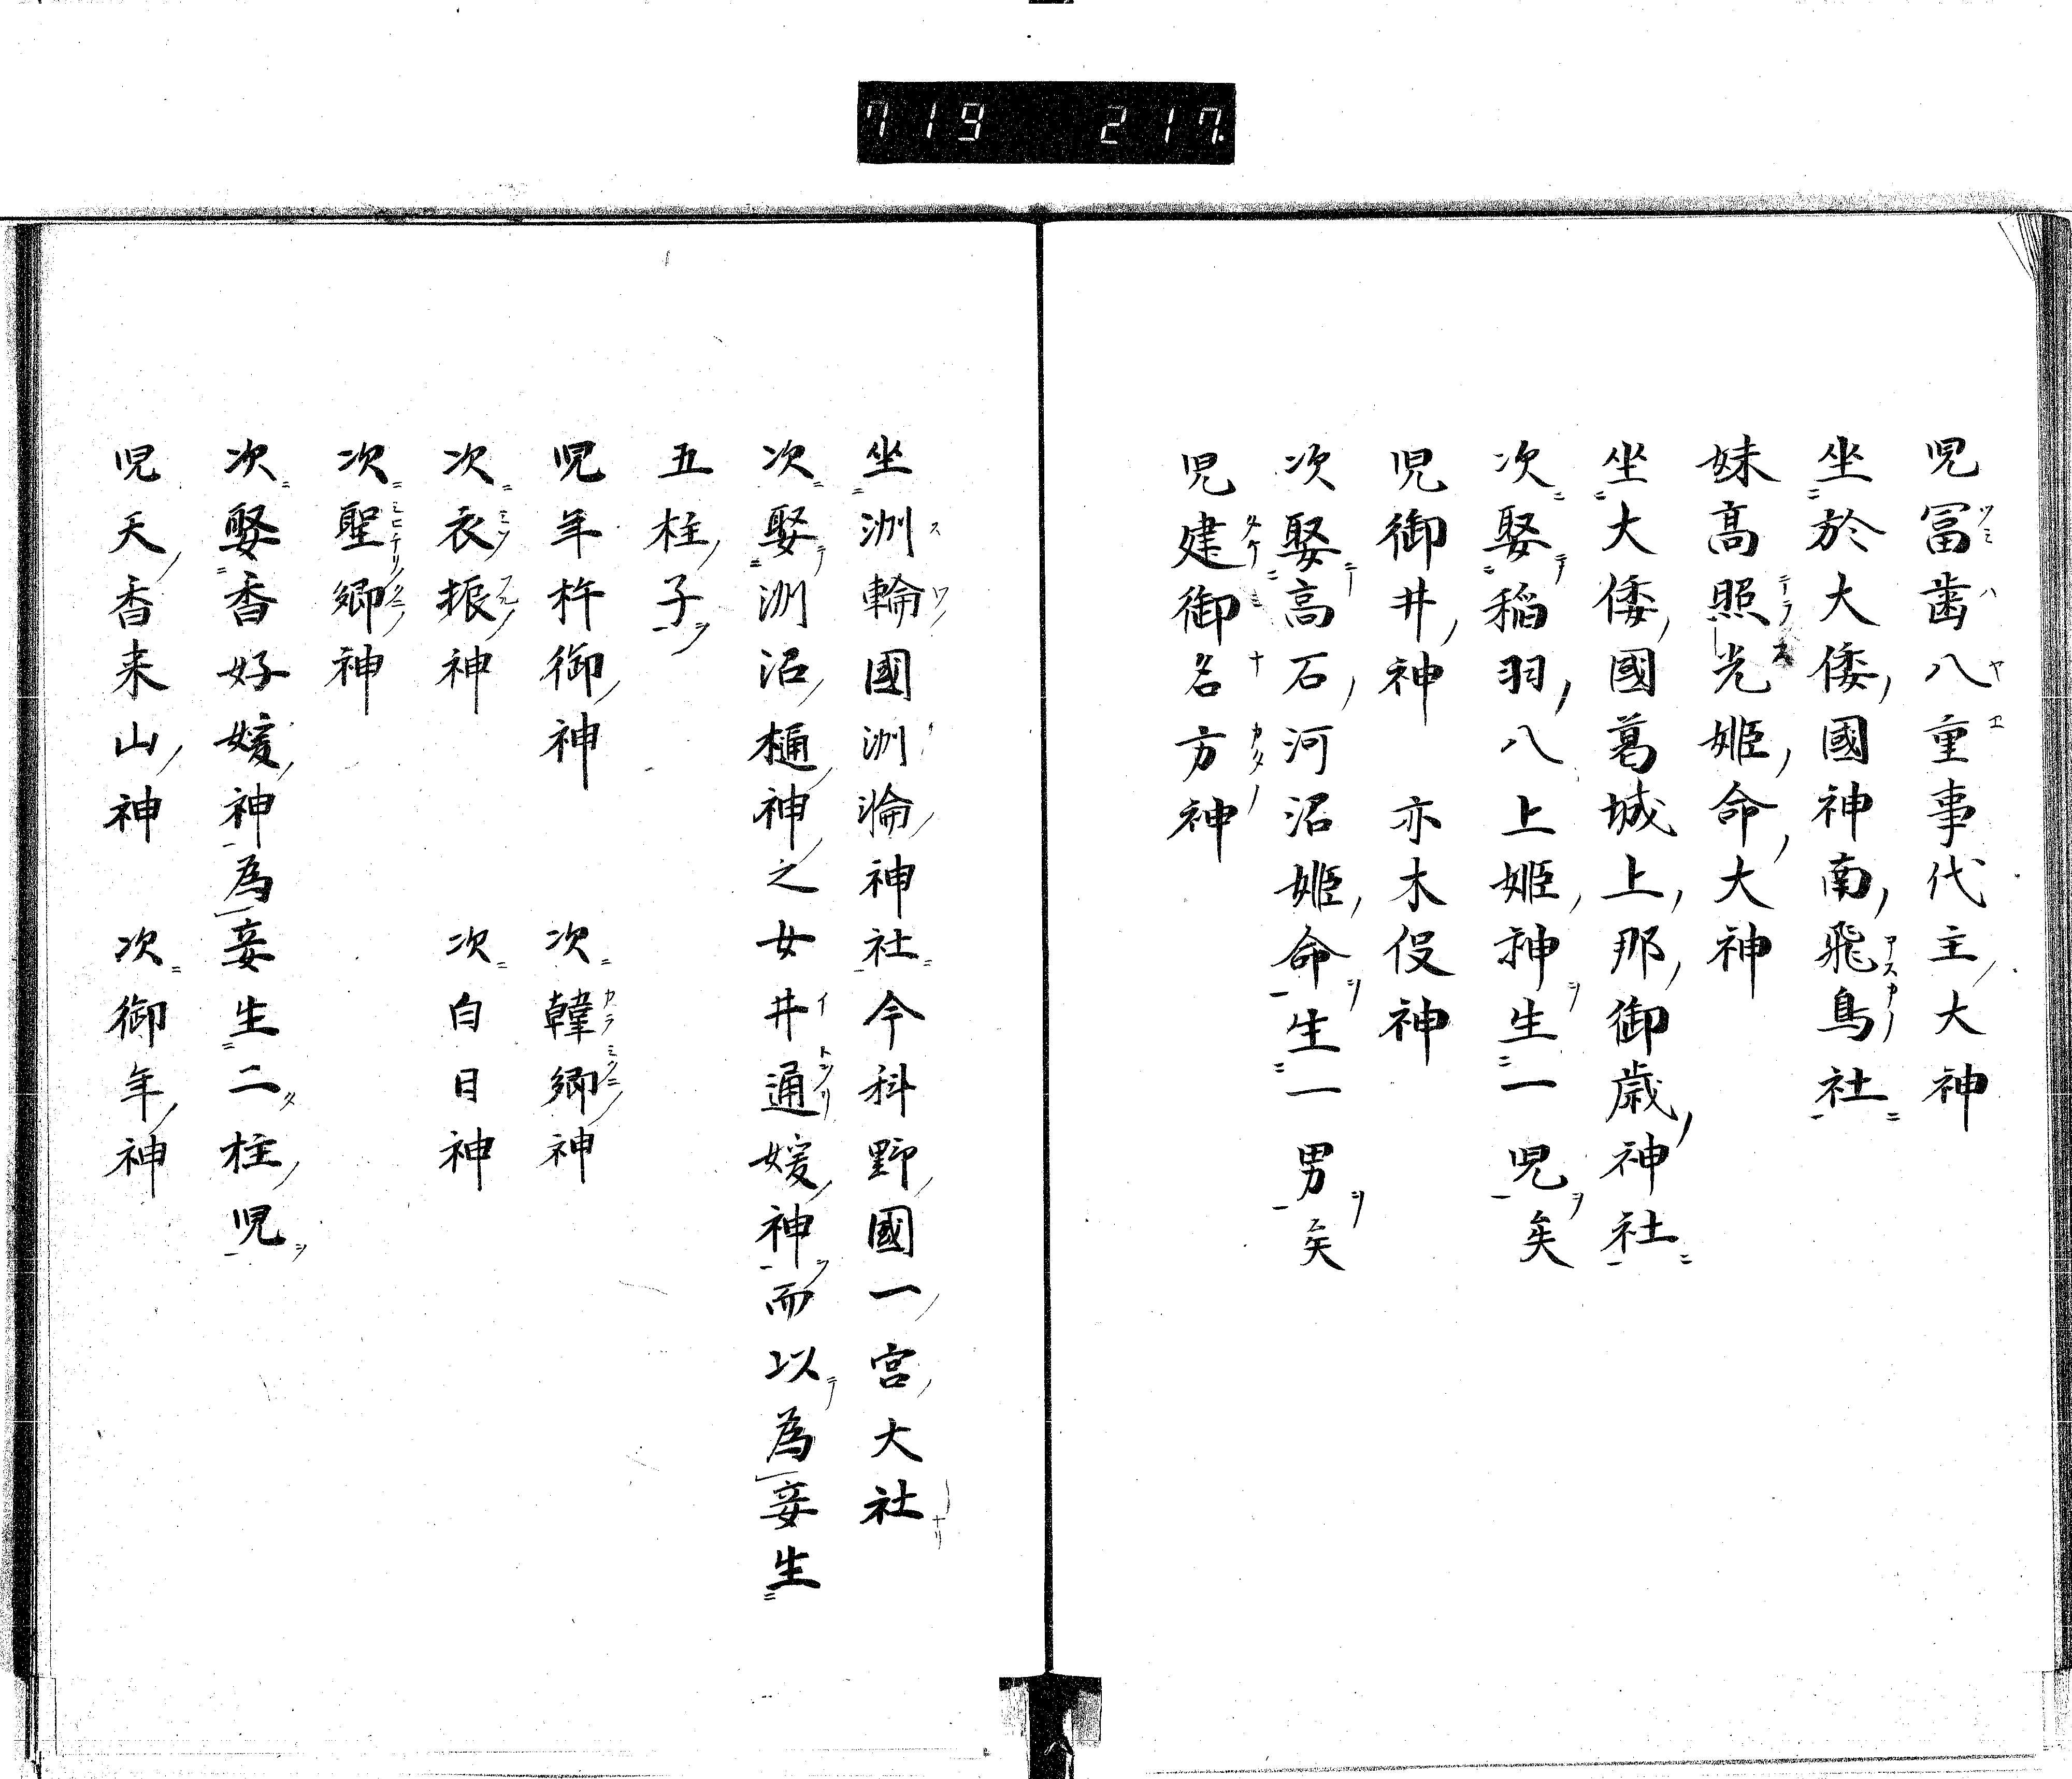 719 217
児冨歯八重事代主大神
坐於大倭國神南飛鳥社
妹髙照光姬命大神
坐大倭國葛城上那御歳神社
次娶稲羽八上姬神生一児矣
児御井神 亦木俣神
次娶高石河沼姬命生一男矣
児建御名方神
坐洲輪國洲淪神社今科野國一宮大社
次娶洲沼樋神之女井通媛神而以為妾生
五柱子
児年杵御神 次韓郷神
次衣振神 次白日神
次聖郷神
次娶香好媛神為妾生二柱児
児天香来山神 次御年神